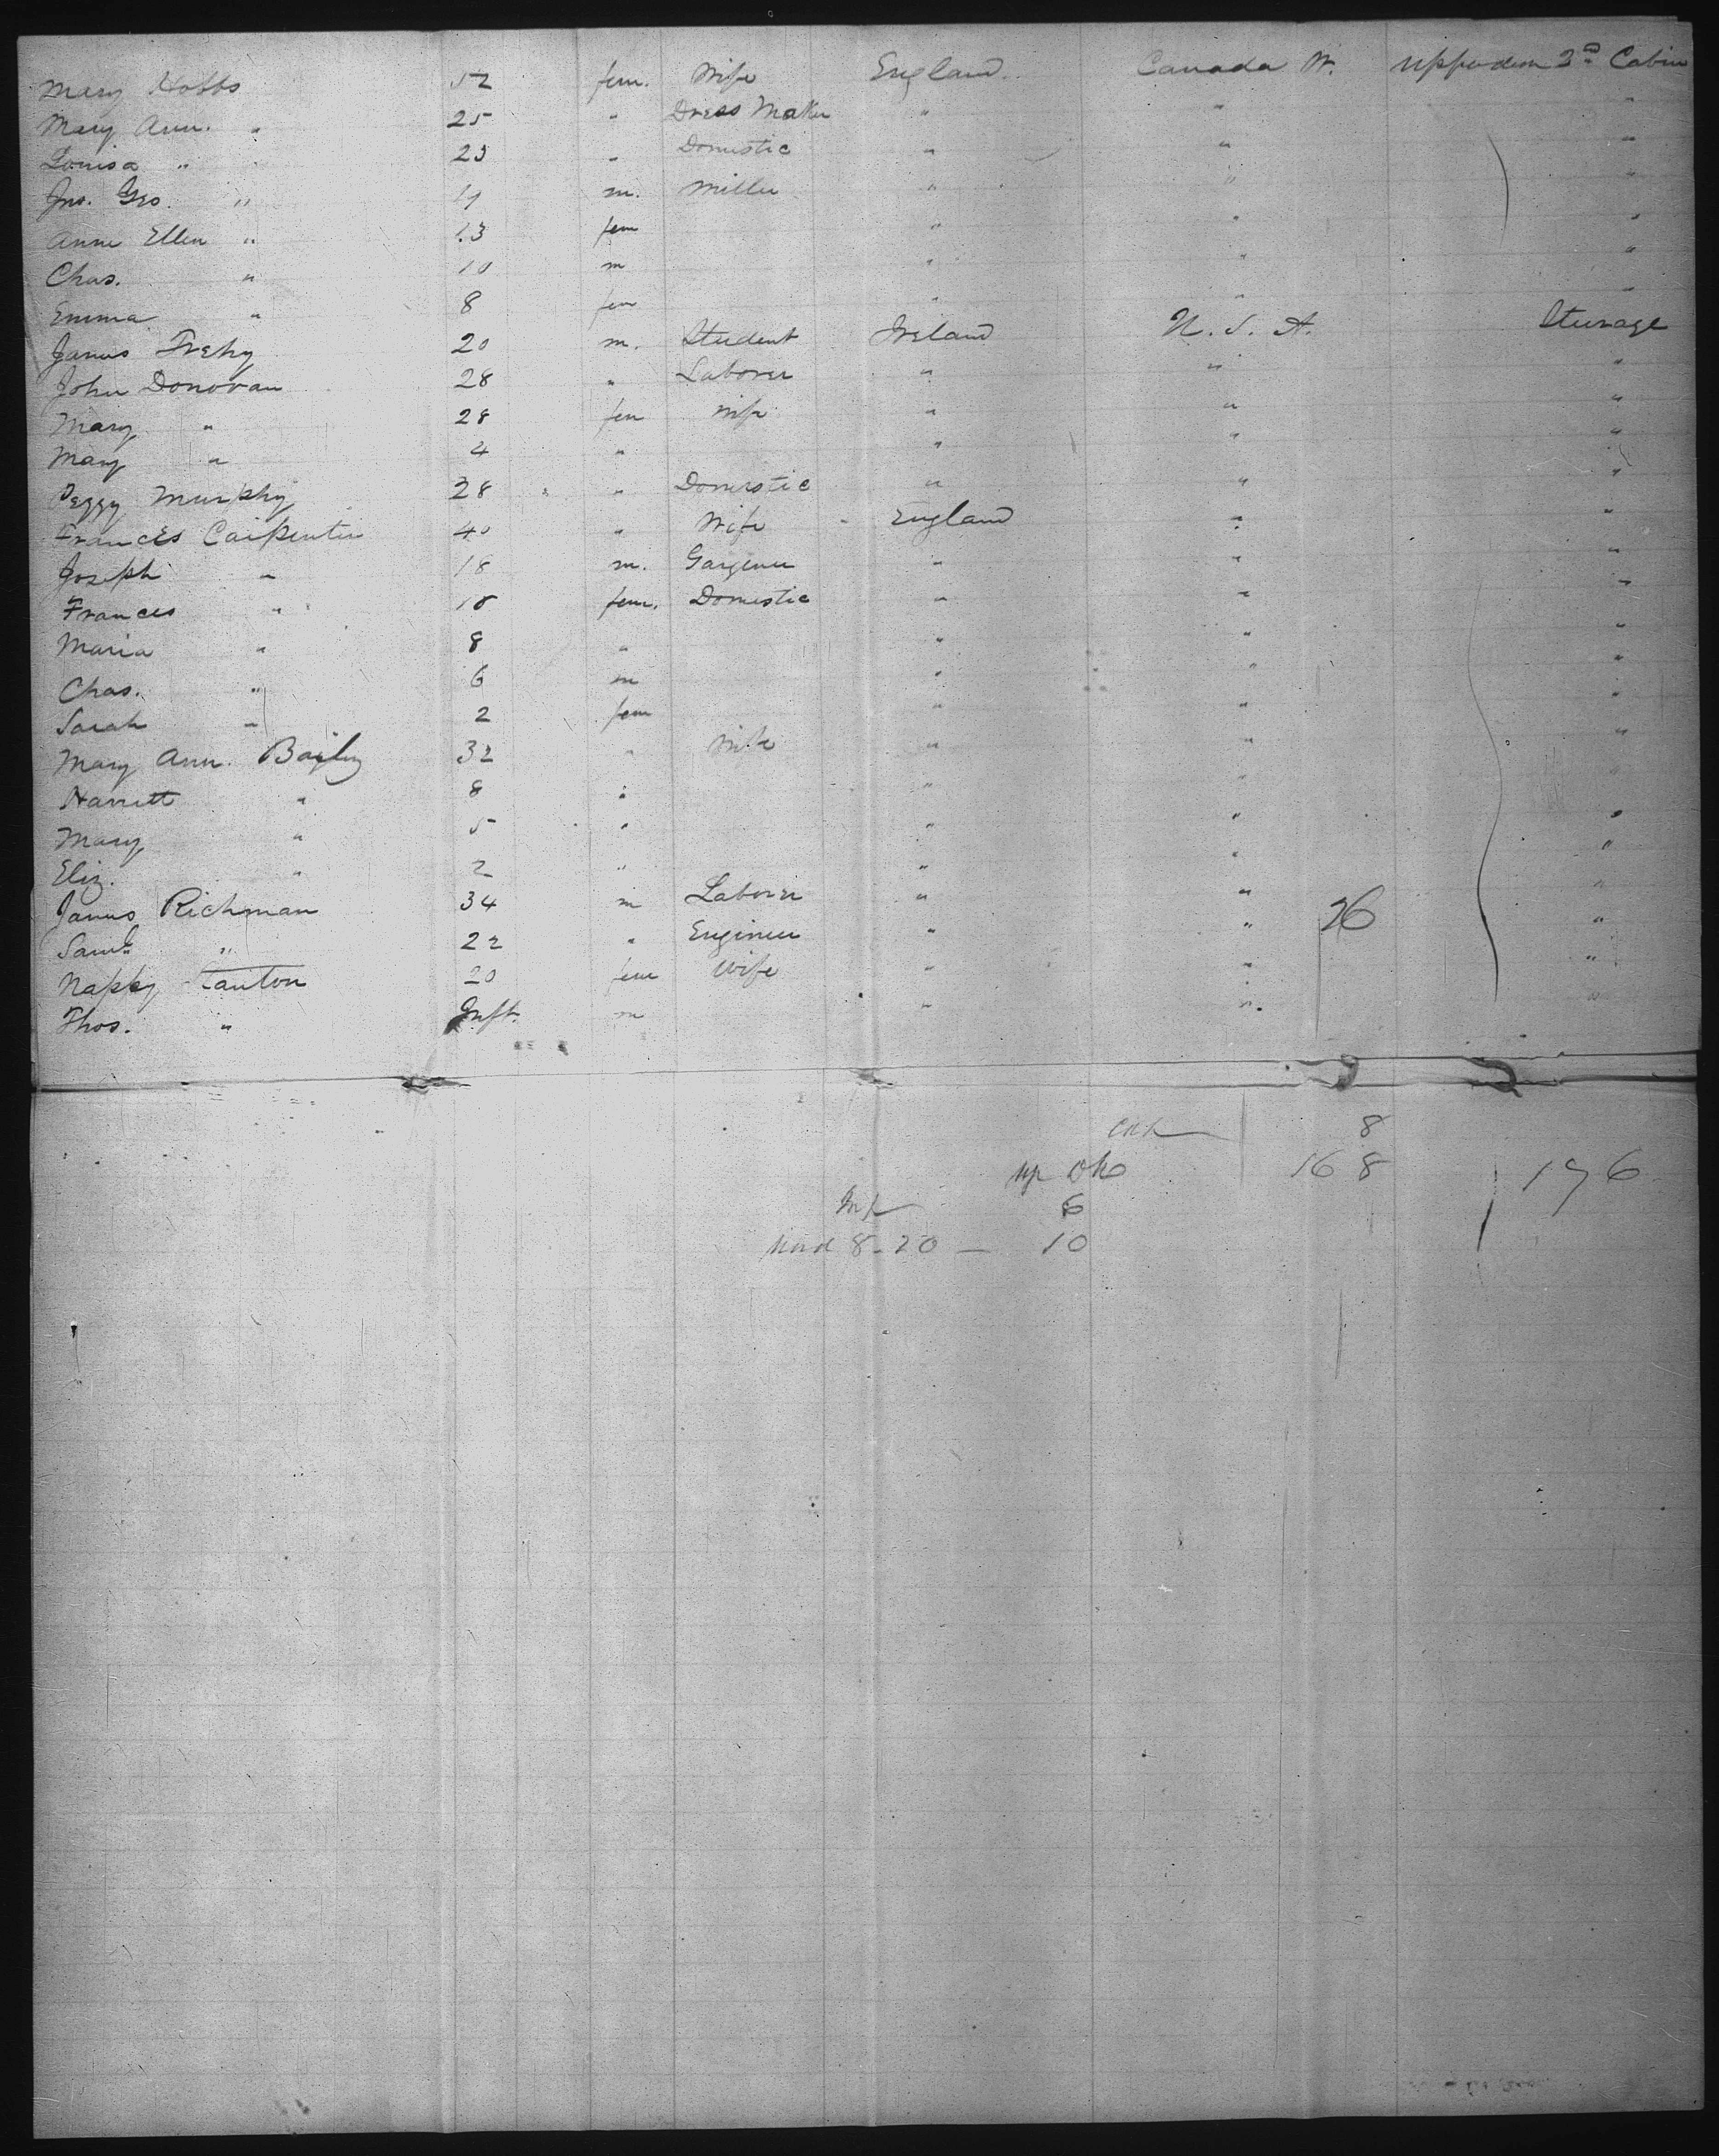 Mary Hobbs 52 fem. Wife England Canada W. Upper deck 2nd Cabin
Mary Ann. " 25 " Dress Maker " " "
Louisa " 23 " Domestic " " "
Jno. Geo. " 19 m. Miller " " "
Anne Ellen " 13 fem " " "
Chas. " 10 m " " "
Emma " 8 fem " " "
James Frehy 20 m. Student Ireland U. S. A. Steerage
John Donovan 28 " Laborer " " "
Mary " 28 fem Wife " " "
Mary " 4 " " " "
Peggy Murphy 28 " Domestic " " "
Frances Carpenter 40 " Wife England " "
Joseph " 18 m. " " "
Frances " 18 fem. Domestic " " "
Maria " 8 " " " "
Chas. " 6 m " " "
Sarah " 2 fem " " "
Mary Ann. Bayley 32 " Wife " " "
Harriett " 8 " " " "
Mary " 5 " " " "
Eliz. " 2 " " " "
James Richman 34 m Laborer " " "
Saml. " 22 " Engineer " " 26 "
Nappy Stanton 20 fem Wife " " "
Thos. " Inft. m " " "
8
up 168 176
Inf 6
8-20 — 10